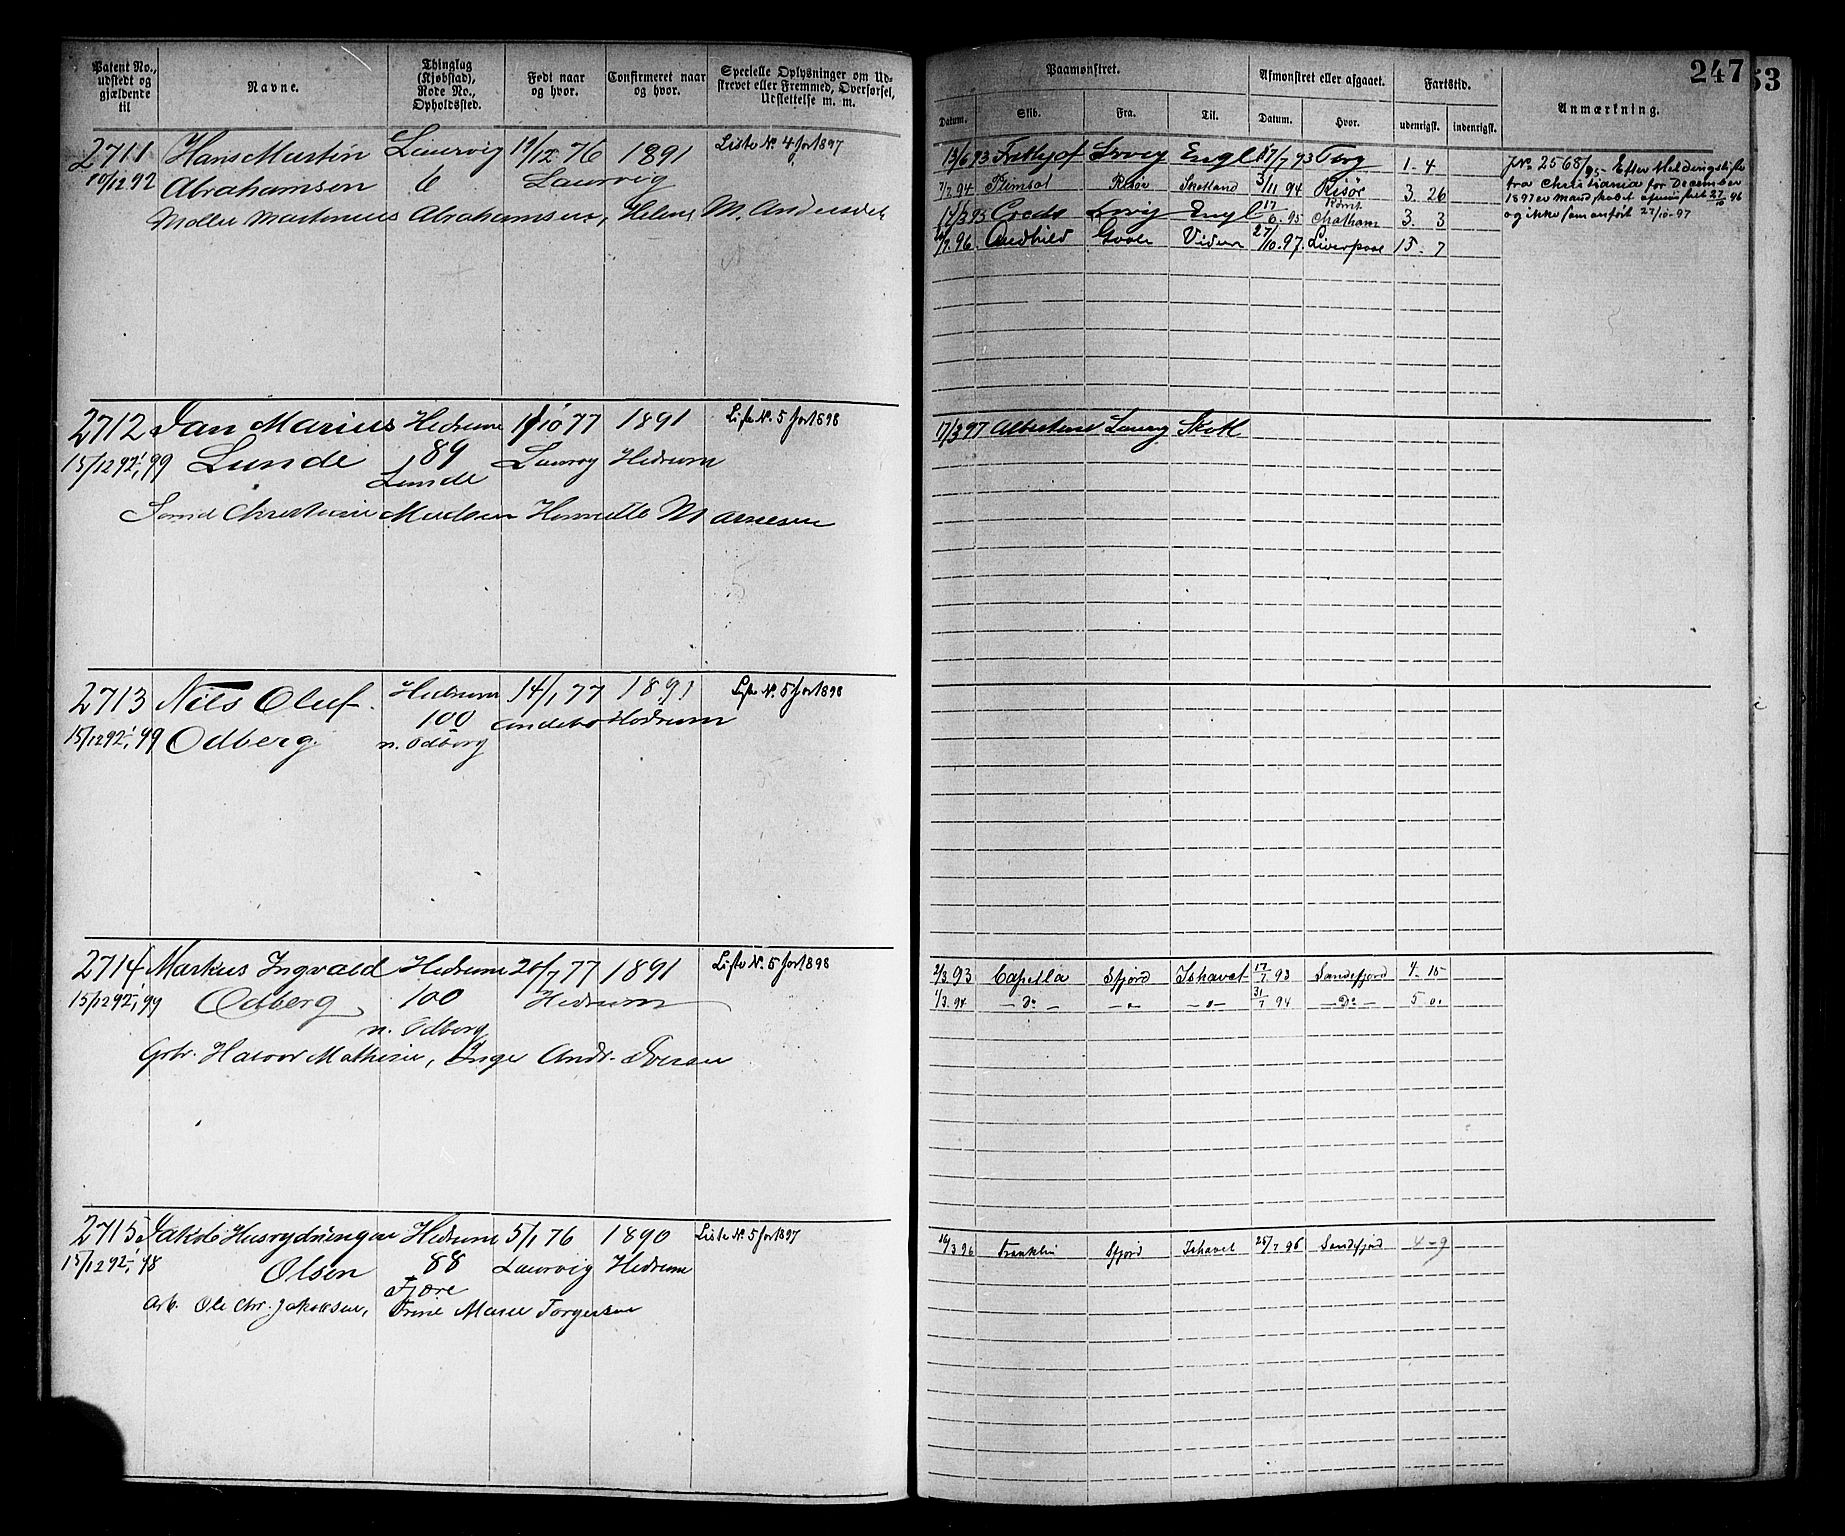 Patent No., udstedt og gjældende til
Navne.
Thinglag (Kjøbstad), Rode No., Opholdssted.
Født naar og hvor.
Confirmeret naar og hvor.
Specielle Oplysninger om Udstrevet eller Fremmed, Overførsel, Udslettelse m. m.
2711 Hans Martin Laurvig 19/12 76 1891 Liste No. 4 for 1897
10/12 92 Abrahamsen 6 Laurvig
Møller Martinius Abrahamsen, Helene M. Andersdt
2712 Jan Marius Hedrum 10 77 1891 Liste No. 5 for 1898
15/12 92, 99 Lunde 89 Laurvig Hedrum
Lunde
Christian Madsen M Arnesen
2713 Nils Oluf Hedrum 14/1 77 1891 Liste No. 5 for 1898
15/12 92, 99 Odberg 100 Andebo Hedrum
n. Odberg
2714 Markus Ingvald Hedrum 7 77 1891 Liste No. 5 for 1898
15/12 92, 99 Odberg 100 Hedrum
n. Odberg
Halvor Mathisen, Inge Andr. Iversen
2715 Jakob Husrydningen Hedrum 5/1 76 1890 Liste No. 5 for 1897
15/12 92, 98 Olsen 88 Laurvig Hedrum
Fjære
Arb. Ole Chr. Jakobsen, Trine Marie Torgersen
247
53
Paamønstret.
Afmønstret eller afgaaet.
Fartstid.
Anmærkning.
Datum. Skib. Fra. Til. Datum. Hvor. udenrigsk. indenrigsk.
13/6 93 Lrvig Engl 17/7 93 1 . 4
7/2 94 Plimsol Risør Skotland 3/11 94 Risør 3. 26
17/3 95 Credo Lrvig Engl 17/6. 95 Chatham 3. 3
7. 96. Goole 27/10. 97. Liverpool 15. 7
JNo 2568/95- Efter Meldingsliste
fra Christiania for December
1897 er mandskabet 27/10 96
og ikke som anført 27/10-97
17/3 97 Albertine Laurv Skotl
2/3 93 Capella Sfjord Ishavet 17/7 93 Sandefjord 4. 15
1/3. 94 — Do — — " — — " — 31/7 94 — Do — 5 0.
16/3 96 Franklin Sfjord Ishavet 7 96 Sandefjord 4 - 9